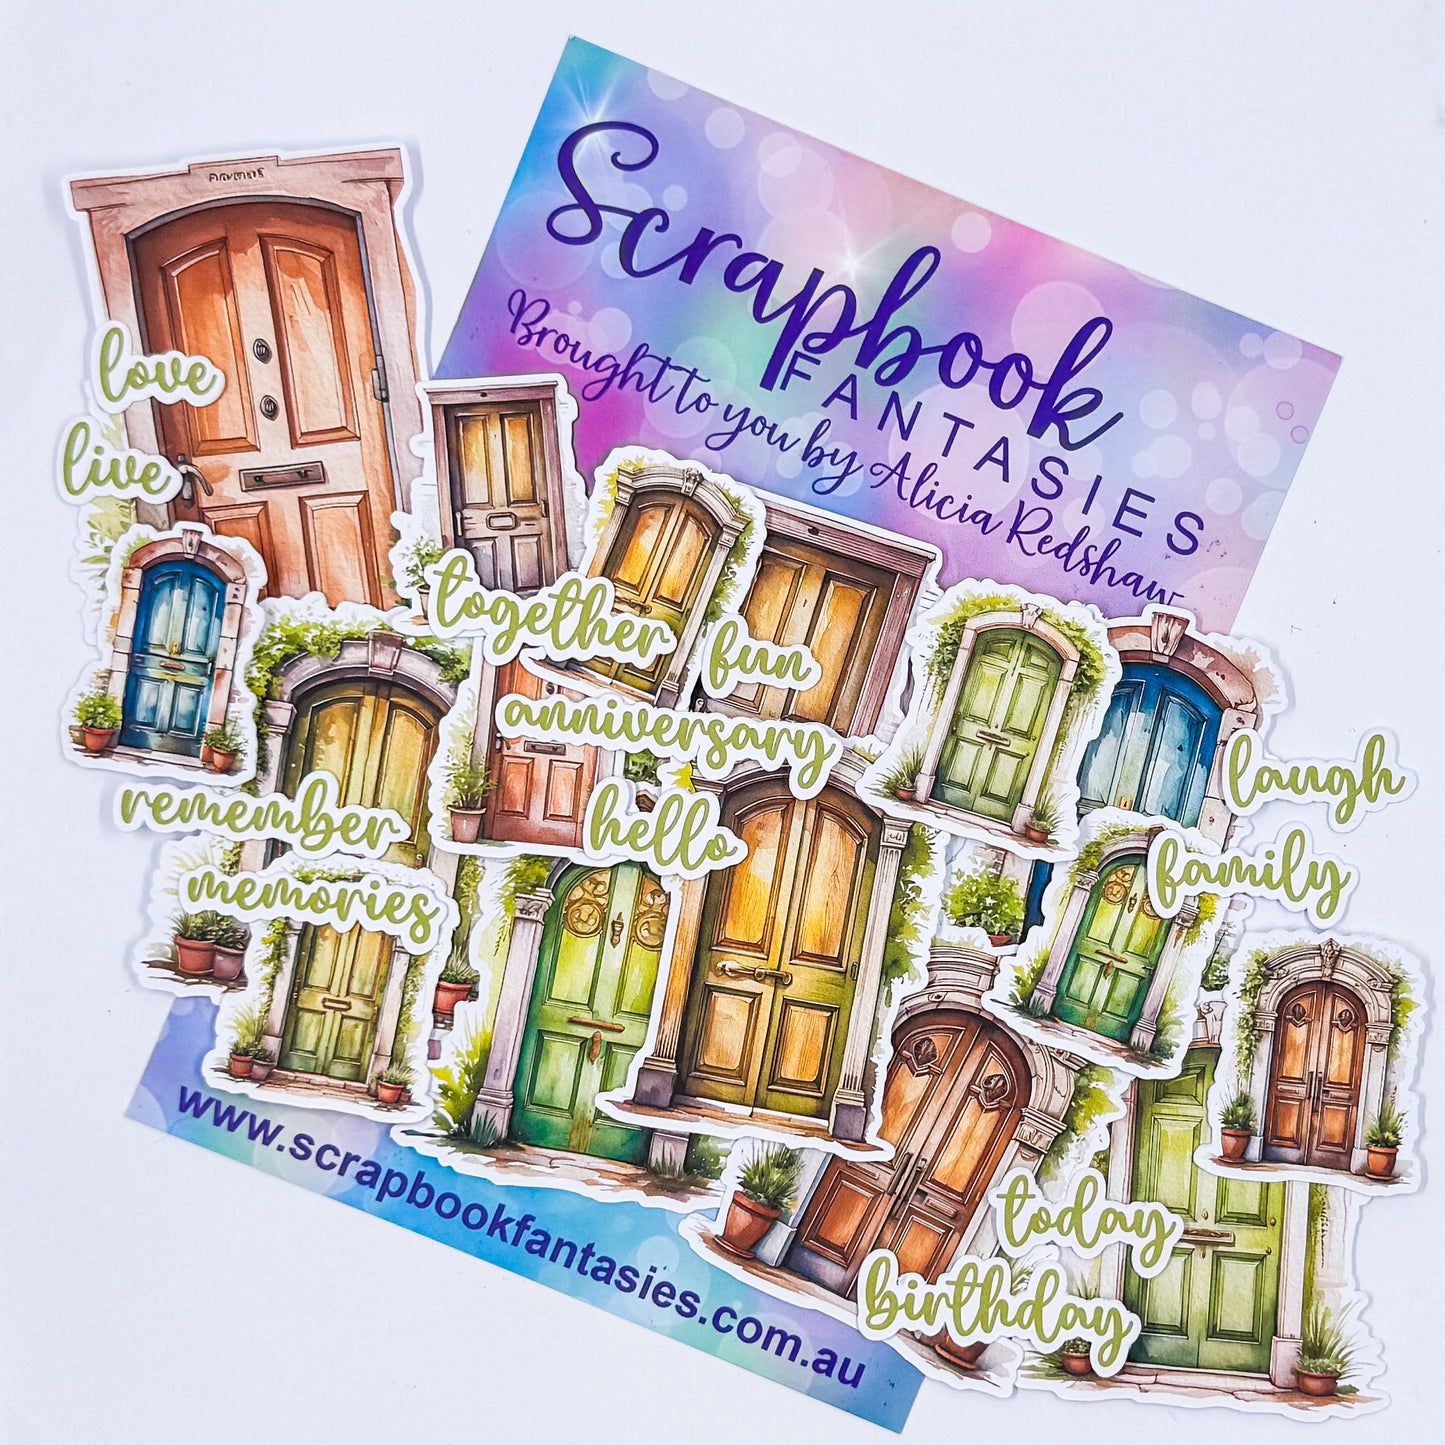 Scrapbook
FANTASIES
Brought to you by Alicia Redshaw
love
live
together
fun
anniversary
hello
remember
memories
laugh
family
today
birthday
www.scrapbookfantasies.com.au